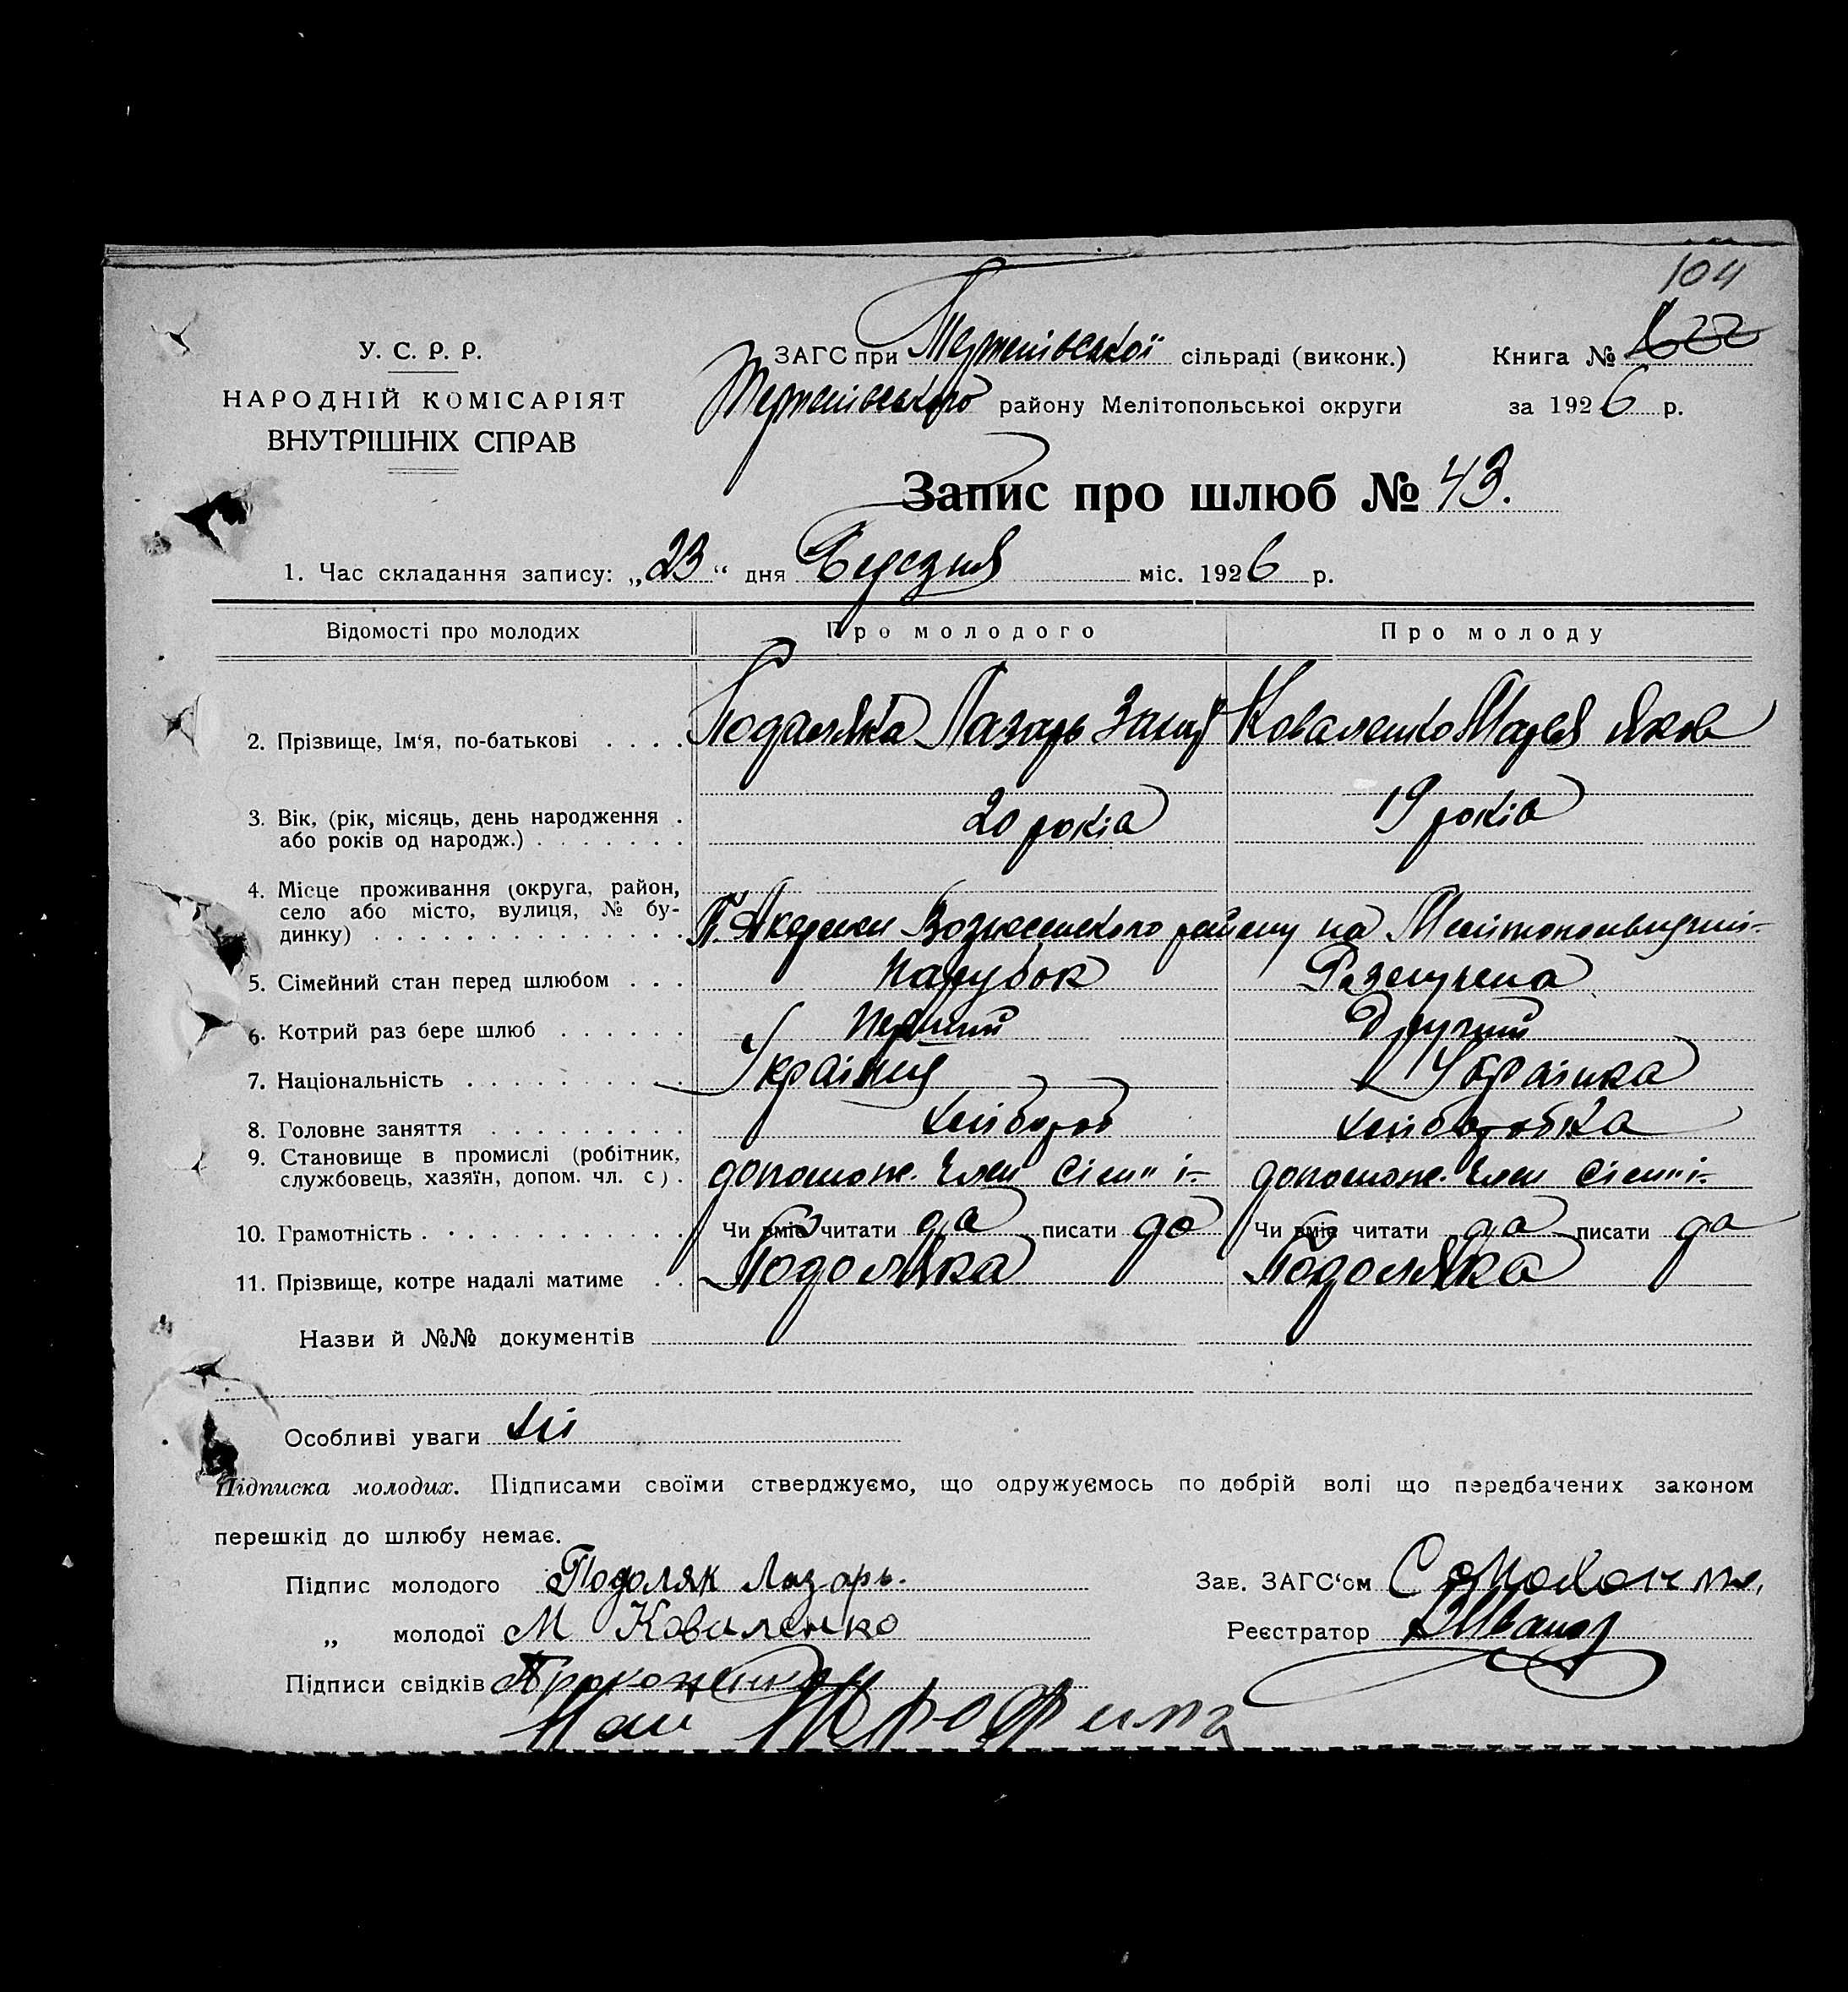 104
У. С. Р. Р.
НАРОДНІЙ КОМІСАРІЯТ
ВНУТРІШНІХ СПРАВ
ЗАГС при Терпенівської сільраді (виконк.)
Терпенівського району Мелітопольської округи
Книга №
за 1926 р.
Запис про шлюб № 43.
1. Час складання запису: „23“ дня Березня міс. 1926 р.
Відомості про молодих
Про молодого
Про молоду
2. Прізвище, Ім‘я, по-батькові . . . . Подоляка Лазарь Коваленко Марія Яков
3. Вік, (рік, місяць, день народження .
або років од народж.) . . . . . . . 20 років 19 років
4. Місце проживання (округа, район,
село або місто, вулиця, № бу-
динку) . . . . . . . . . . . . . . району на
5. Сімейний стан перед шлюбом . . . Парубок Разлучена
6. Котрий раз бере шлюб . . . . . . Перший Другий
7. Національність . . . . . . . . . Українец Українка
8. Головне заняття . . . . . . . . . хлібороб хліборобка
9. Становище в промислі (робітник,
службовець, хазяїн, допом. чл. с). допомож. член сімˮї допомож. член сімˮї
10. Грамотність . . . . . . . . . . . Чи вміє читати да писати да Чи вміє читати да писати да
11. Прізвище, котре надалі матиме . . Подоляка Подоляка
Назви й №№ документів
Особливі уваги
Підписка молодих. Підписами своїми стверджуємо, що одружуємось по добрій волі що передбачених законом
перешкід до шлюбу немає.
Підпис молодого Подоляк Лазарь.
Зав. ЗАГС‘ом
„ молодої М Коваленко
Реєстратор
Підписи свідків